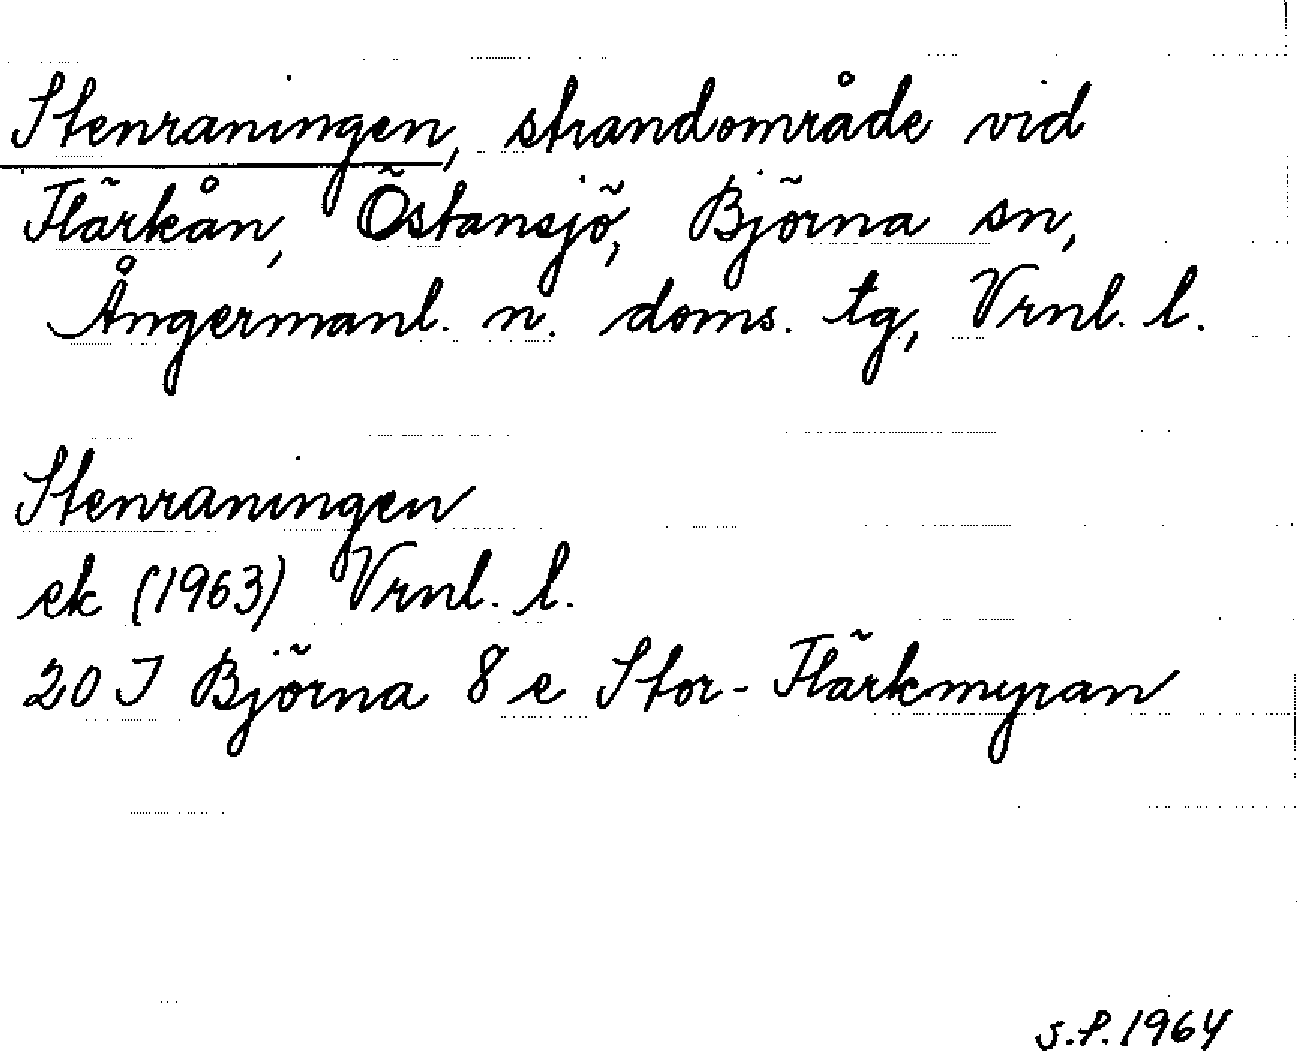 Stenraningen, strandområde vid
Flärkån, Östansjö, Björna sn,
Ångermanl. n. doms. tg, Vrnl. l.
Stenraningen
ek (1963) Vrnl. l.
20 J Björna 8 e Stor-Flärkmyran
S.P. 1964